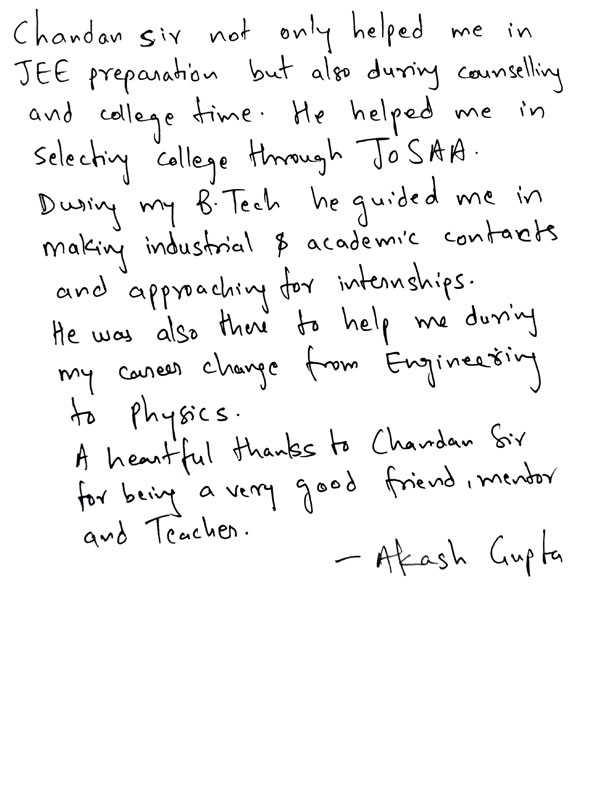 Chandan sir not only helped me in
JEE preparation but also during counselling
and college time. He helped me in
selecting college through JoSAA.
During my B.Tech he guided me in
making industrial & academic contacts
and approaching for internships.
He was also there to help me during
my career change from Engineering
to Physics.
A heartful thanks to Chandan Sir
for being a very good friend, mentor
and Teacher.
— Akash Gupta